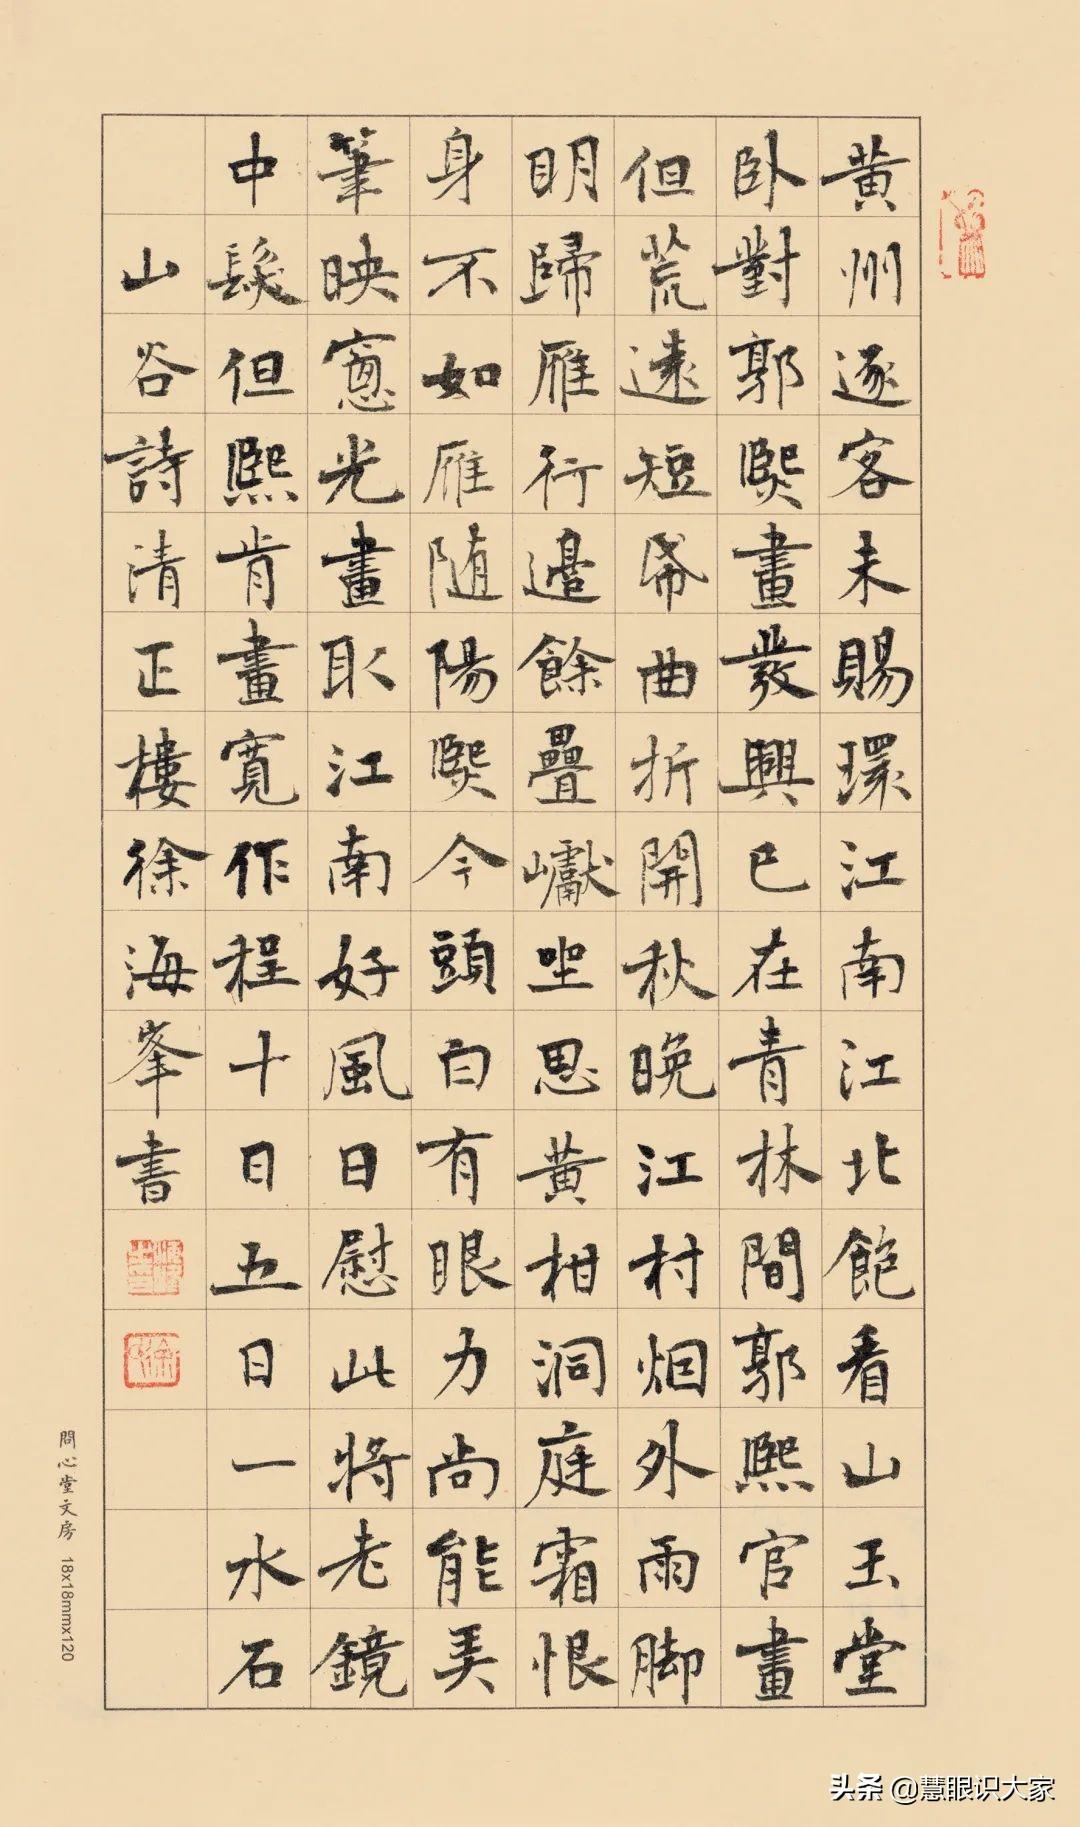 黄州逐客未賜環江南江北飽看山玉堂
卧對郭熈畫發興已在青林間郭熙官畫
但荒遠短帋曲折開秋晚江村烟外雨脚
明歸雁行邉餘疊巘坐思黄柑洞庭霜恨
身不如雁随陽熈今頭白有眼力尚能弄
筆映窻光畫取江南好風日慰此将老鏡
中髮但熙肯畫寬作程十日五日一水石
山谷詩清正樓徐海峯書
問心堂文房 18x18mmx120
头条 @慧眼识大家